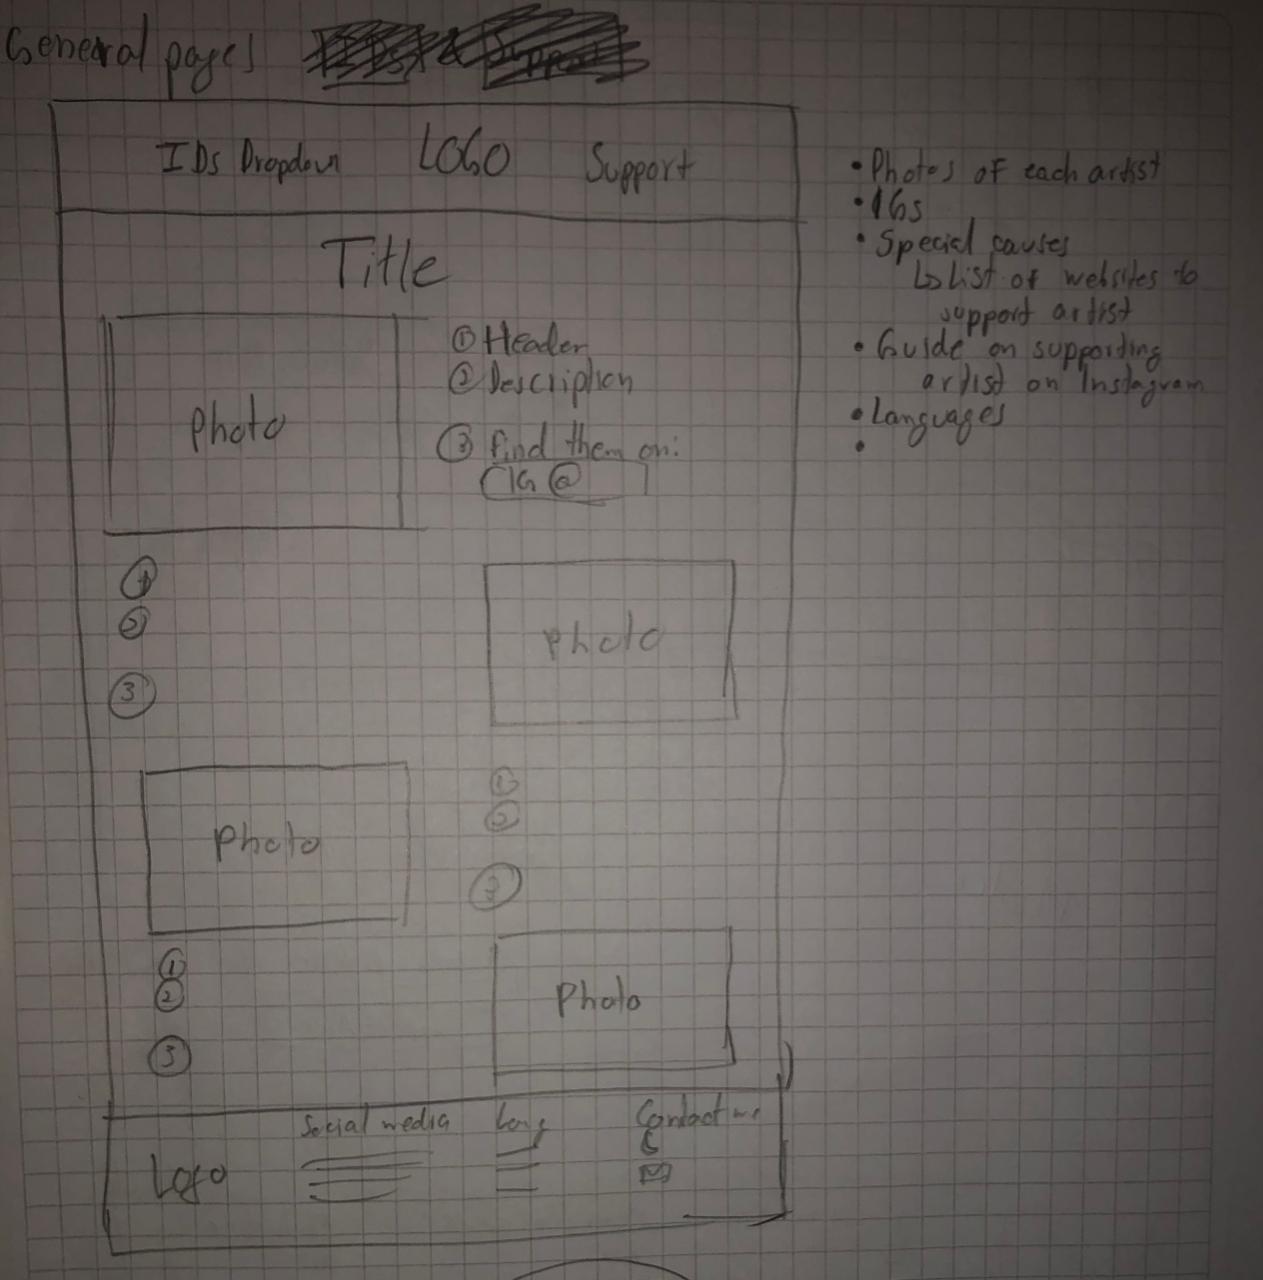 General pages &
IDs Dropdown LOGO Support
Title
Photo
① Header
② Description
③ find them on:
IG @
①
②
③
Photo
Photo
①
②
③
①
②
③
Photo
Logo
Social media
Lang
Contact me
• Photos of each artist
• IGs
• Special causes
↳ List of websites to
support artist
• Guide on supporting
artist on Instagram
• Languages
•